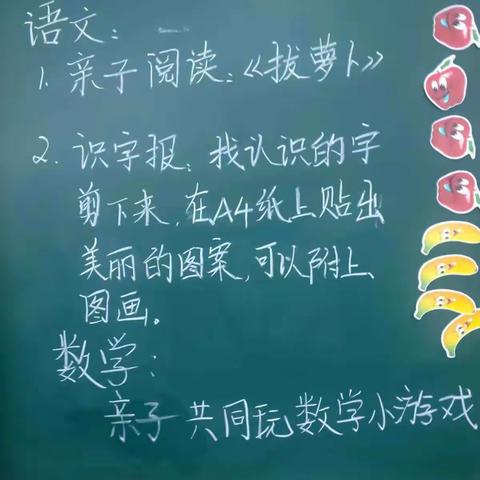 语文：
1. 亲子阅读：《拔萝卜》
2. 识字报：找认识的字
剪下来，在A4纸上贴出
美丽的图案，可以附上
图画。
数学：
亲子共同玩数学小游戏